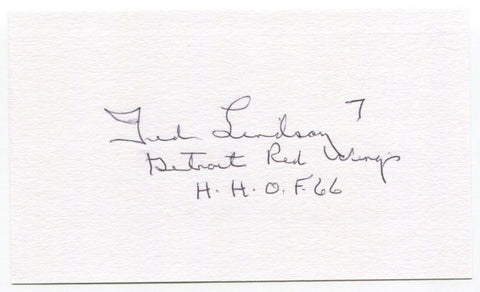 Ted Lindsay 7
Detroit Red Wings
H.H.O.F. 66